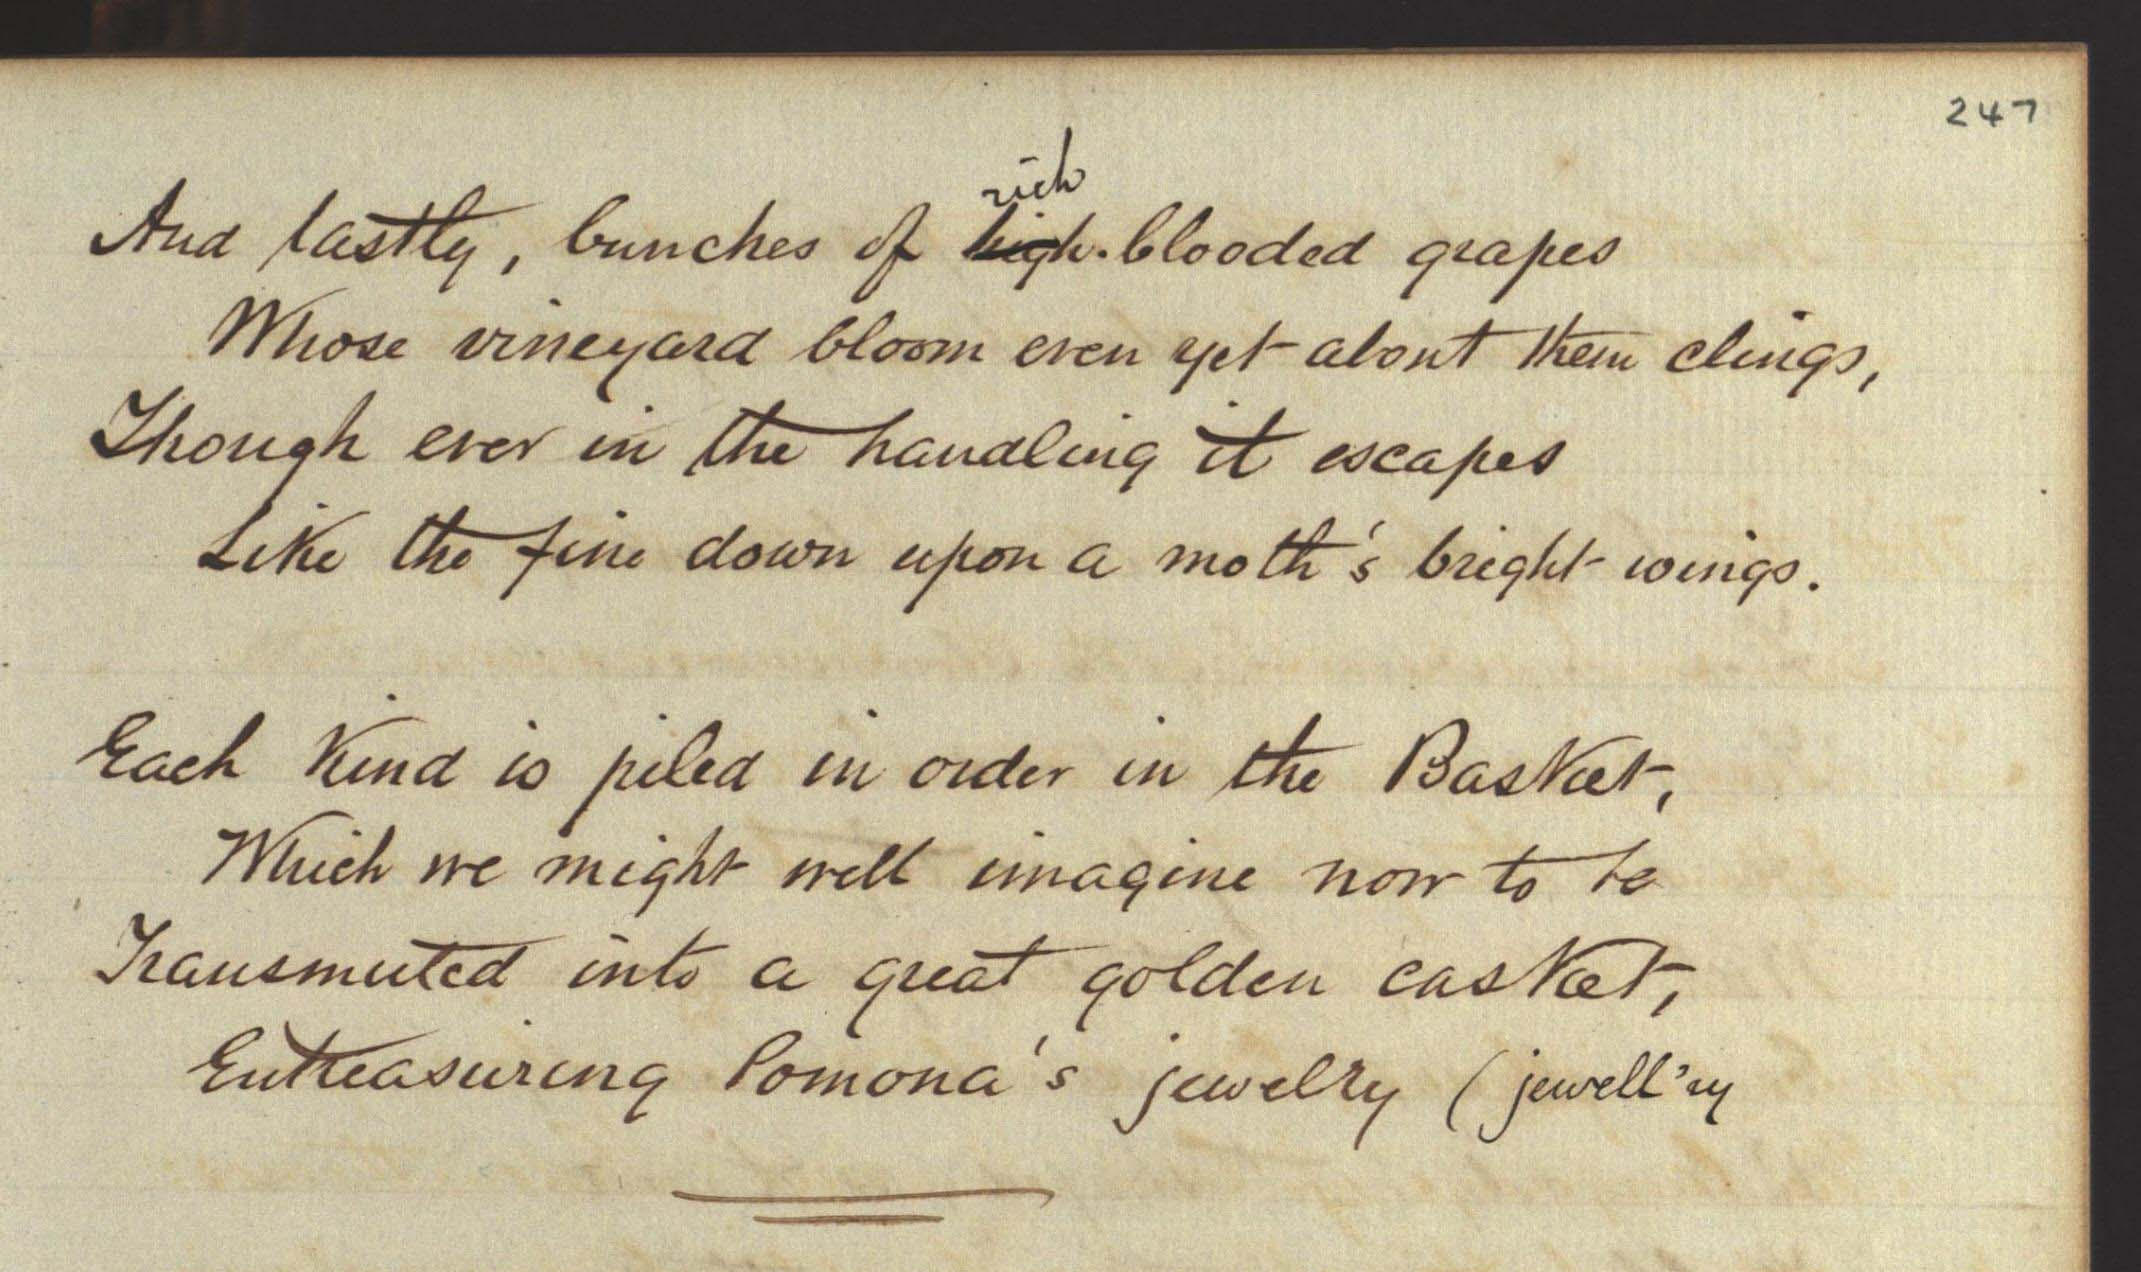 247
rich
And lastly, bunches of high-blooded grapes
Whose vineyard bloom even yet about them clings,
Though ever in the handling it escapes
Like the fine down upon a moth's bright wings.
Each kind is piled in order in the Basket,
Which we might well imagine now to be
Transmuted into a great golden casket,
Entreasuring Pomona's jewelry (jewell'ry